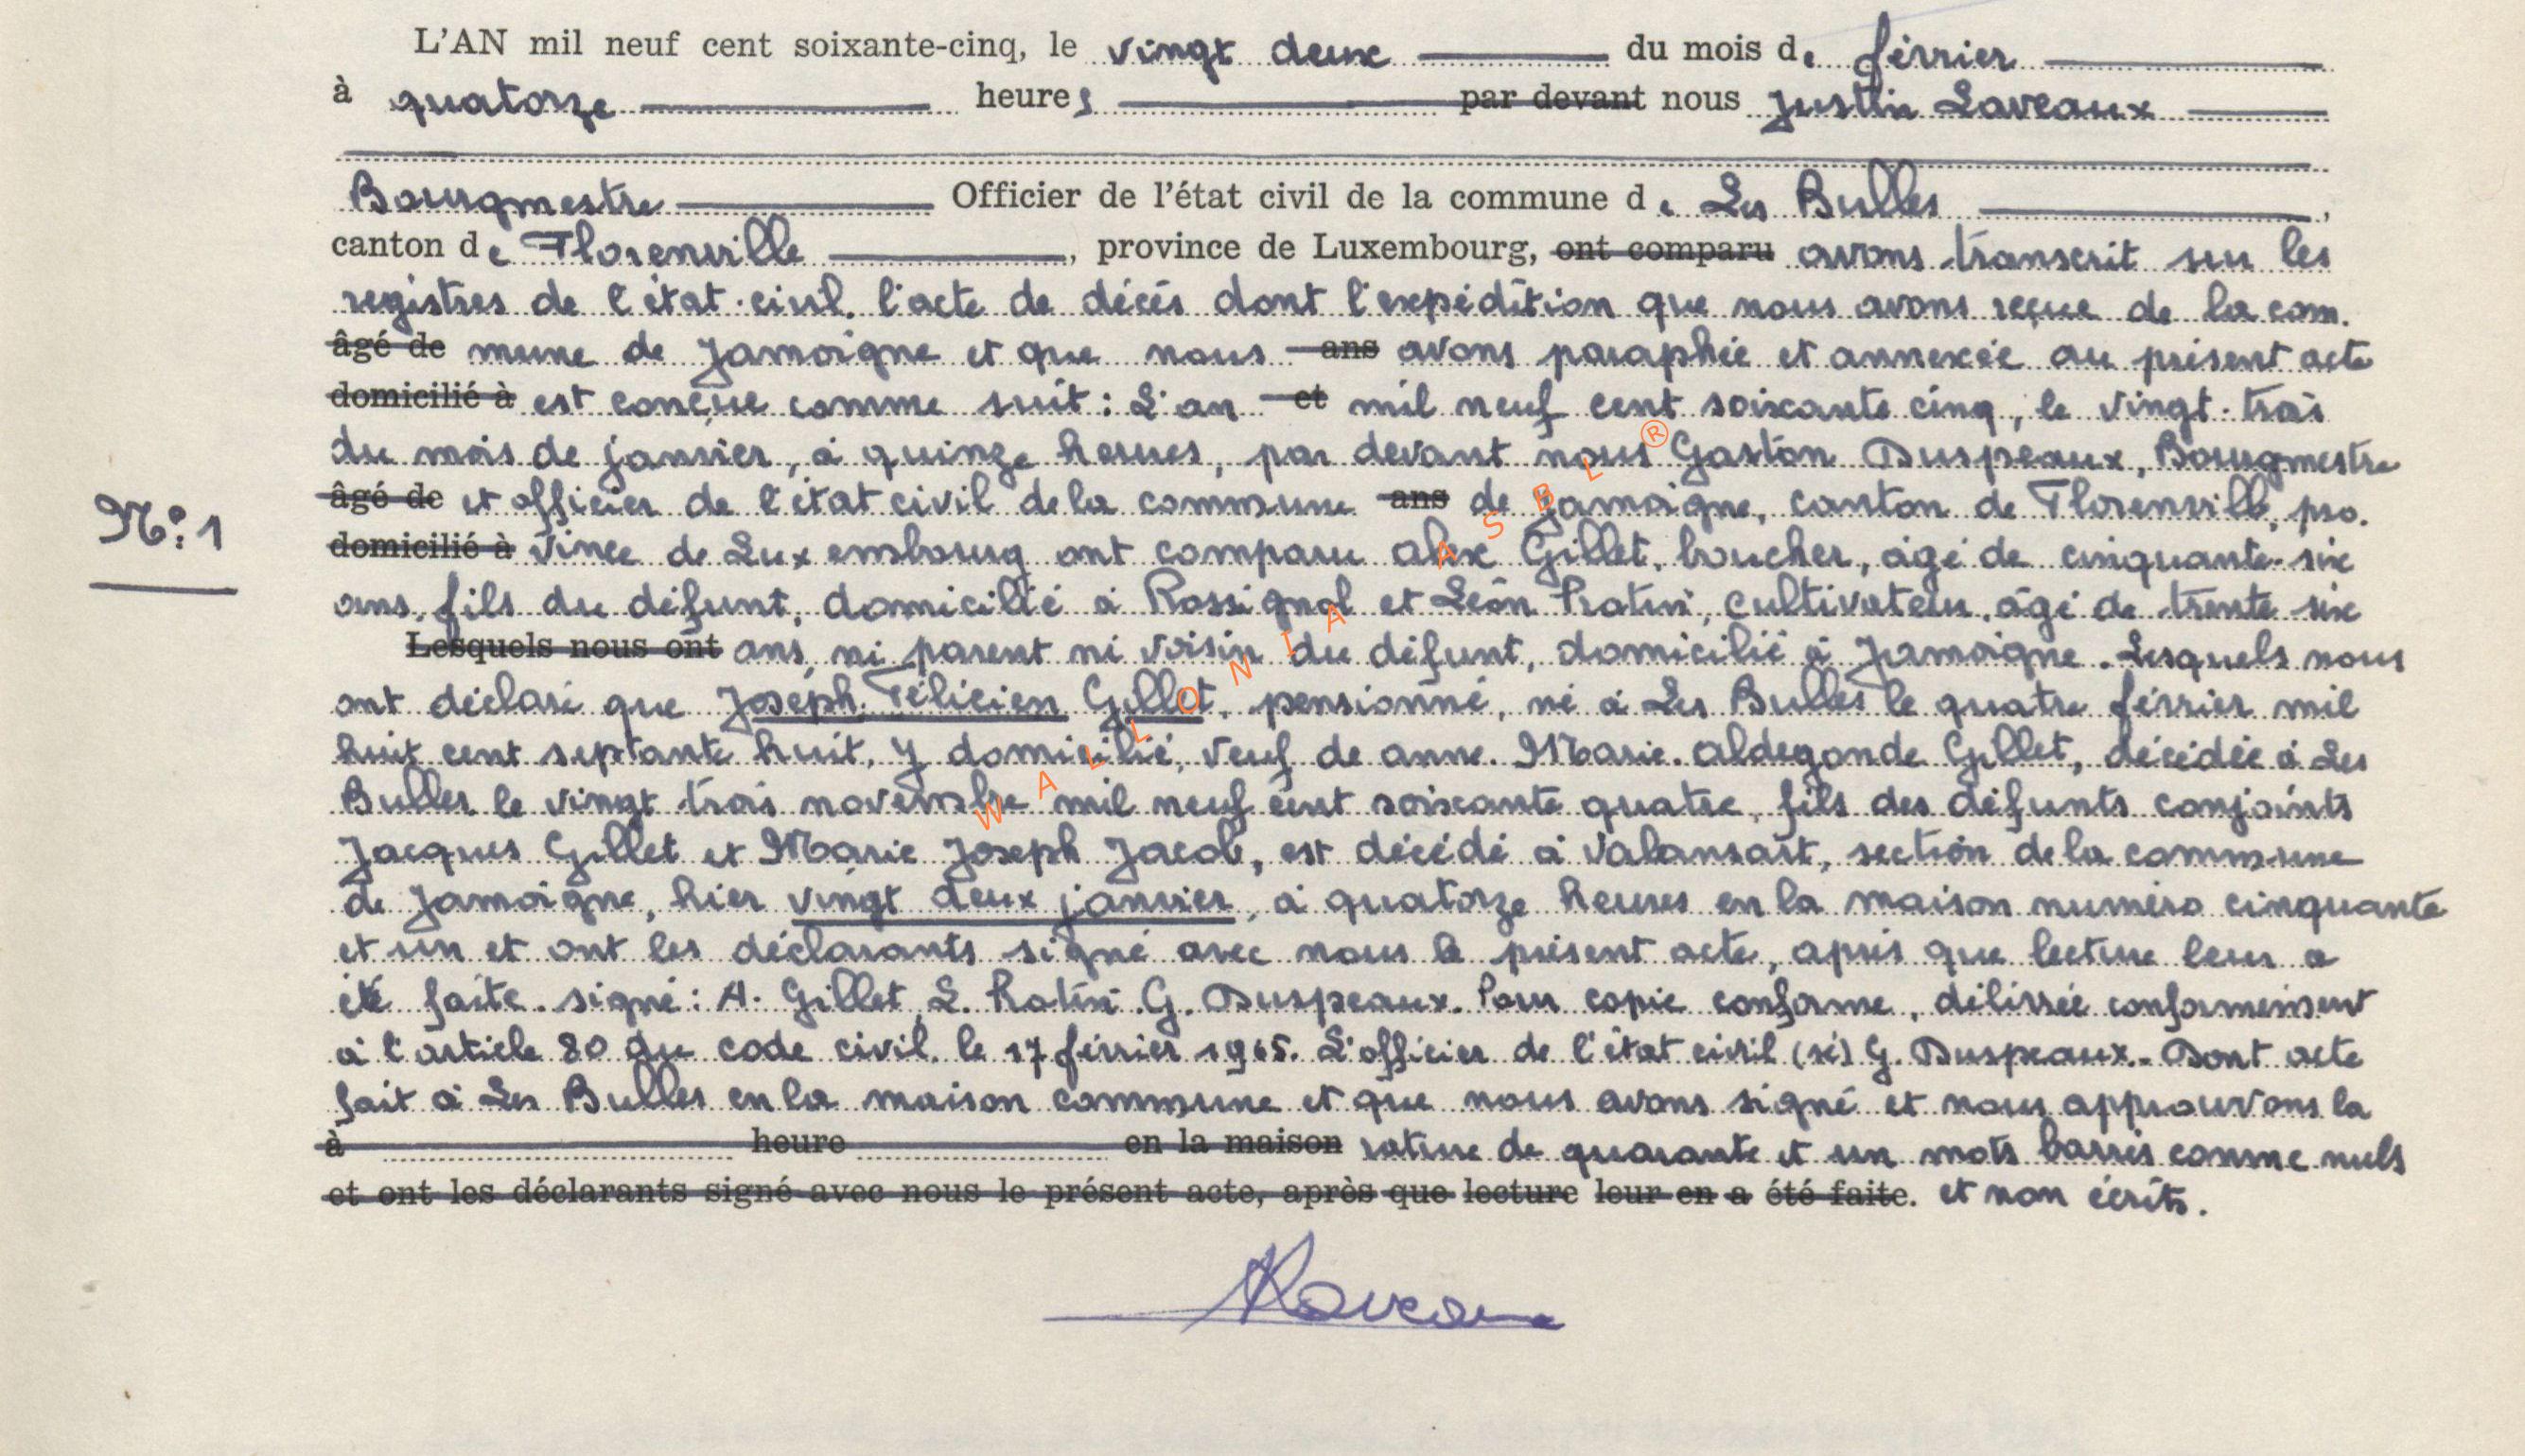 L'AN mil neuf cent soixante-cinq, le vingt deux du mois de février
à quatorze heures par devant nous Justin Laveaux
Bourgmestre Officier de l'état civil de la commune de Les Bulles,
canton de Florenville, province de Luxembourg, ont comparu avons transcrit sur les
registres de l'état-civil. l'acte de décès dont l'expédition que nous avons reçue de la com.
âgé de mune de Jamoigne et que nous ans avons paraphée et annexée au présent acte
domicilié à est conçue comme suit : L'an et mil neuf cent soixante cinq, le vingt-trois
du mois de janvier, à quinze heures, par devant nous Gaston Duspeaux, Bourgmestre
âgé de et officier de l'état civil de la commune ans de Jamoigne, canton de Florenville, pro.
N°: 1
domicilié à vince de Luxembourg ont comparu alex Gillet, boucher, âgé de cinquante-six
ans, fils du défunt, domicilié à Rossignol et Léon cultivateur, âgé de trente six
Lesquels nous ont ans, ni parent ni voisin du défunt, domicilié à Jamoigne. Lesquels nous
ont déclaré que Joseph. Félicien Gillet, pensionné, né à Les Bulles le quatre février mil
huit cent septante huit, y domicilié, veuf de anne. Marie. aldegonde Gillet, décédée à Les
Bulles le vingt trois novembre mil neuf cent soixante quatre, fils des défunts conjoints
Jacques Gillet et Marie Joseph Jacob, est décédé à Valansart, section de la commune
de Jamoigne, hier vingt deux janvier, à quatorze heures en la maison numéro cinquante
et un et ont les déclarants signé avec nous le présent acte, après que lecture leur a
été faite. signé : A. Gillet, L. G. Duspeaux. Pour copie conforme, délivrée conformément
à l'article 80 du code civil, le 17 février 1965. L'officier de l'état civil (sé) G. Duspeaux. Dont acte
fait à Les Bulles en la maison commune et que nous avons signé et nous approuvons la
à heure en la maison rature de quarante et un mots barrés comme nuls
et ont les déclarants signé avec nous le présent acte, après que lecture leur en a été faite. et non écrits.
WALLONIA ASBL ®